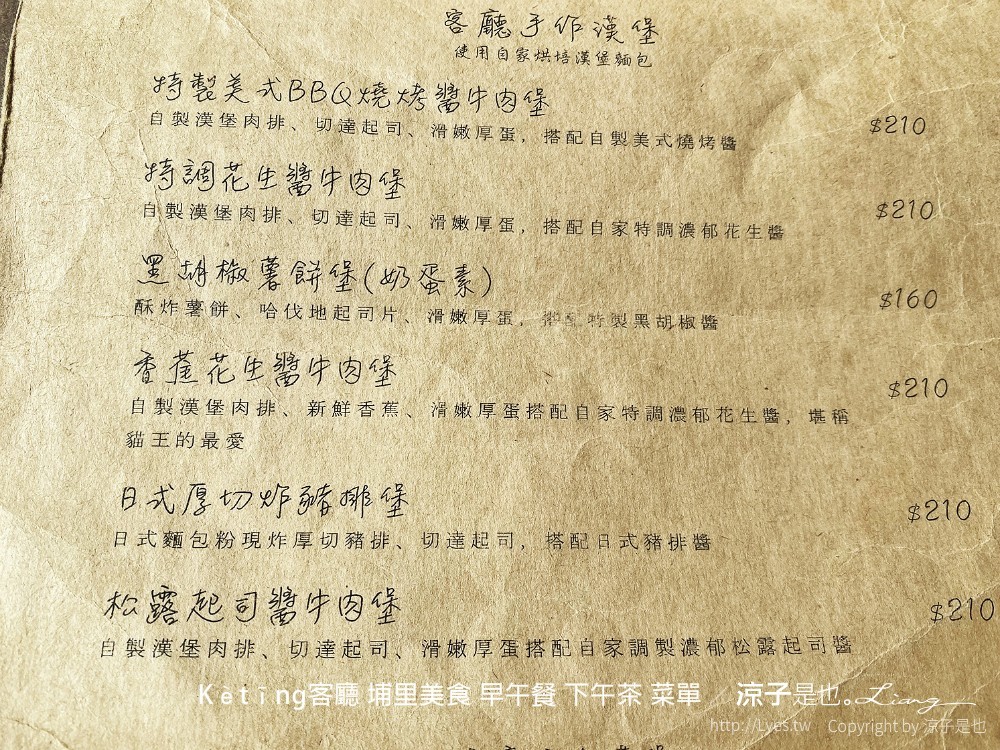 客廳手作漢堡
使用自家烘培漢堡麵包
特製美式BBQ燒烤醬牛肉堡
自製漢堡肉排、切達起司、滑嫩厚蛋，搭配自製美式燒烤醬
$210
特調花生醬牛肉堡
自製漢堡肉排、切達起司、滑嫩厚蛋，搭配自家特調濃郁花生醬
$210
黑胡椒薯餅堡(奶蛋素)
酥炸薯餅、哈伐地起司片、滑嫩厚蛋，搭配特製黑胡椒醬
$160
香蕉花生醬牛肉堡
自製漢堡肉排、新鮮香蕉、滑嫩厚蛋搭配自家特調濃郁花生醬，堪稱
貓王的最愛
$210
日式厚切炸豬排堡
日式麵包粉現炸厚切豬排、切達起司，搭配日式豬排醬
$210
松露起司醬牛肉堡
自製漢堡肉排、切達起司、滑嫩厚蛋搭配自家調製濃郁松露起司醬
$210
Keting客廳 埔里美食 早午餐 下午茶 菜單 涼子是也。Liang
http://Lyes.tw Copyright by 涼子是也